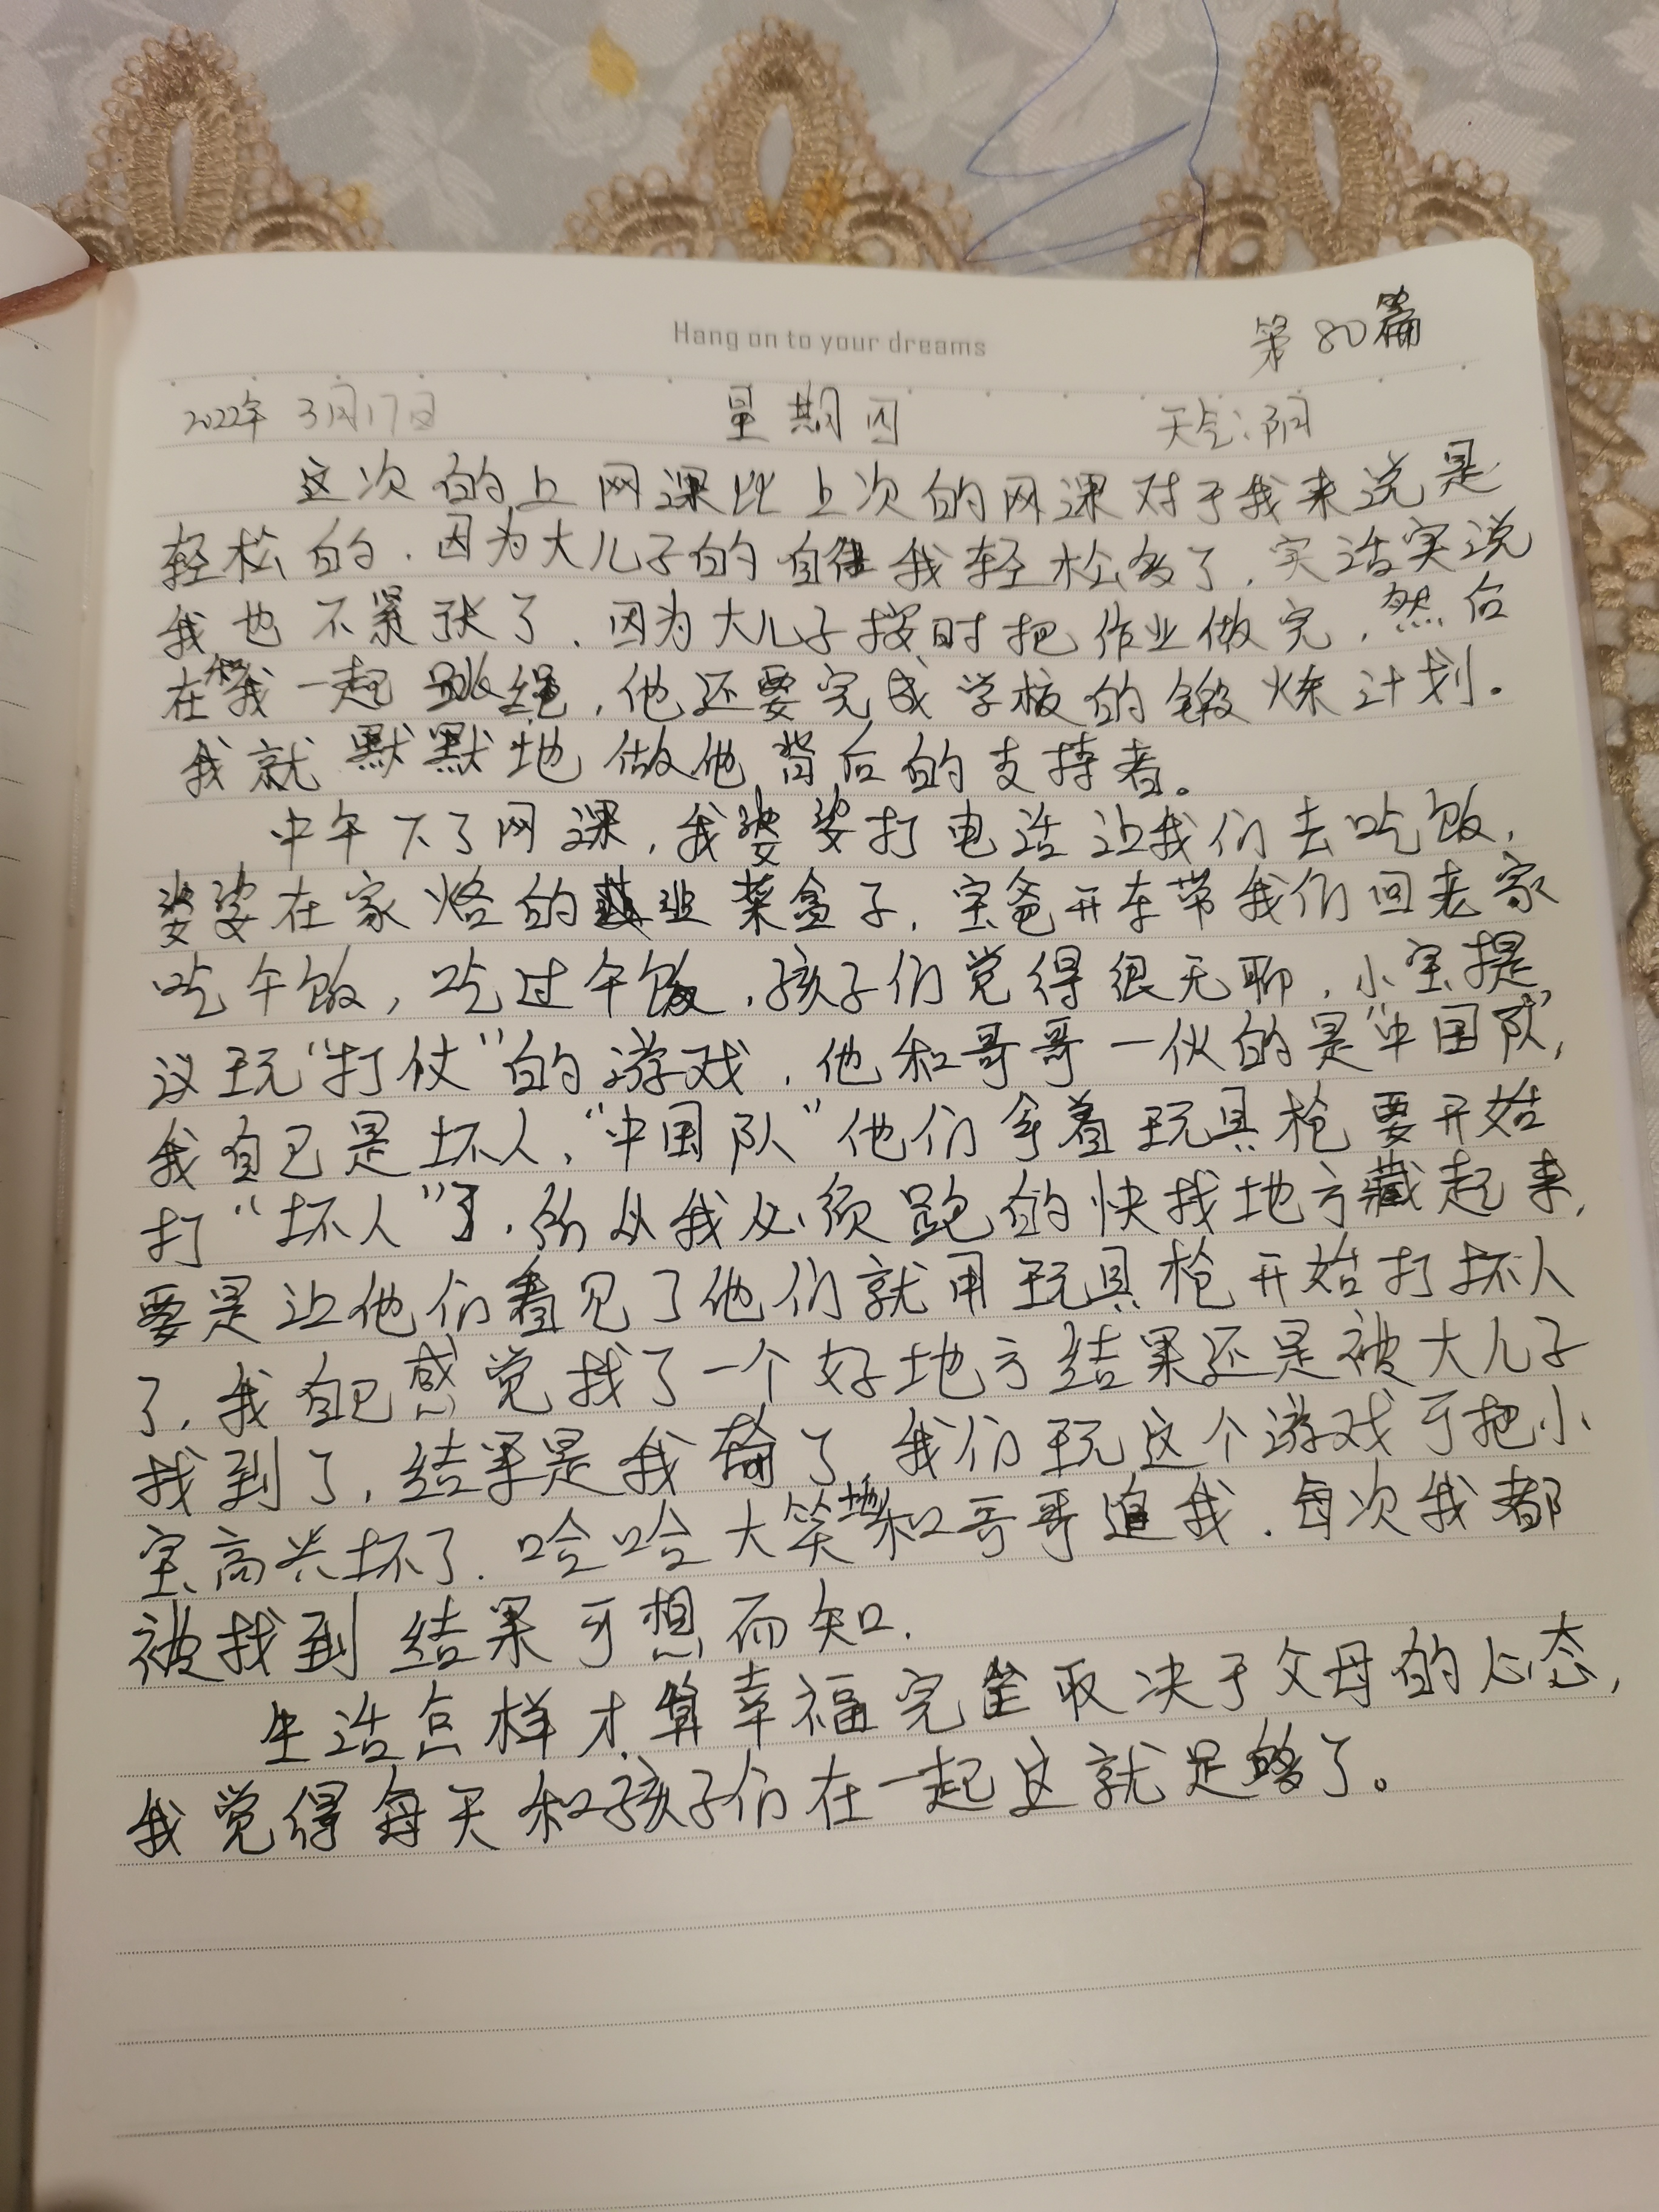 Hang on to your dreams
第80篇
2022年 3月17日 星期四 天气:阴
这次的上网课比上次的网课对于我来说是
轻松的，因为大儿子的自律我轻松多了，实话实说
我也不紧张了，因为大儿子按时把作业做完，然后
在和我一起跳绳，他还要完成学校的锻炼计划。
我就默默地做他背后的支持者。
中午下了网课，我婆婆打电话让我们去吃饭，
婆婆在家烙的韭菜盒子，宝爸开车带我们回老家
吃午饭，吃过午饭，孩子们觉得很无聊，小宝提
议玩“打仗”的游戏，他和哥哥一伙的是“中国队”，
我自己是坏人，“中国队”他们拿着玩具枪要开始
打“坏人”了，所以我必须跑的快找地方藏起来，
要是让他们看见了他们就用玩具枪开始打坏人
了，我自己感觉找了一个好地方结果还是被大儿子
找到了，结果是我输了，我们玩这个游戏可把小
宝高兴坏了，哈哈大笑地和哥哥追我，每次我都
被找到结果可想而知.
生活怎样才算幸福完全取决于父母的心态，
我觉得每天和孩子们在一起这就足够了。